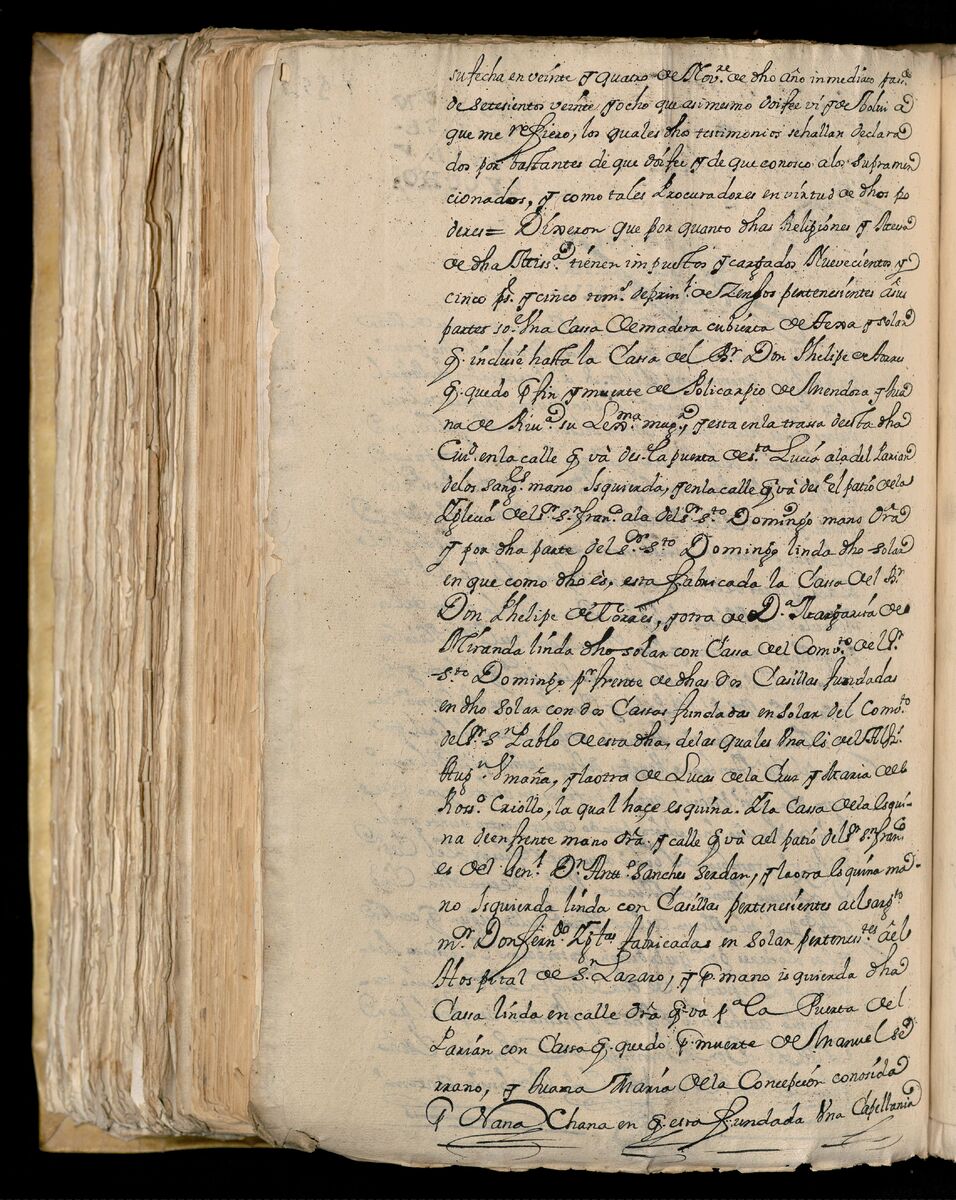 su fecha en veinte y quatro de Nov.re de dho año inmediato pas.do
de setesientos veinte y ocho que asimesmo doi fee vi y de bolui a
que me refiero, los quales dho testimonios se hallan declara
dos por bastantes de que doi fee y de que conosco a los supramen
cionados, y como tales Procuradores en virtud de dhos po
deres = Dixeron que por quanto dhas Religiones y
de dha tienen impuestos y cargados Nuevecientos y
cinco p.s y cinco tom.s de prin.l de Zensos pertenesientes a sus
partes so.e Vna Cassa de madera cubierta de texa y solar
q. incluie hasta la Cassa del B.r Don Phelipe de torres
q. quedo p fin y muerte de Policarpio de Mendoza y Jua
na de Riu.a su Lex.ma mug.r, y esta en la trassa de esta dha
Ciu.d en la calle q và des.e la puerta de s.ta Lucia a la del Parian
de los sang.es mano Isquierda, y en la calle q và des.e el patio de la
Yglecia del S.r s.n Fran.co a la del S.r s.to Domingo mano dra
y por dha parte del S.r s.to Domingo linda dho solar
en que como dho es, esta fabricada la Cassa del B.r
Don Phelipe de Torres, y otra de D.a Margarita de
Miranda linda dho solar con Cassa del Comb.to del S.r
s.to Domingo p.r frente de dhas dos Casillas fundadas
en dho solar con dos Cassas fundadas en solar del Comb.to
del S.r s.n Pablo de esta dha, de las quales Vna es del Alf.z
Aug.n Vmaña, y la otra de Lucas de la Cruz y Maria de el
Ross.o Criollo, la qual haçe esquina. Y la Cassa de la Esqui-
na de enfrente mano dra. y calle q và del patio del S.r s.n Fran.co
es del Gen.l D.n Ant.o Sanches Serdan, y la otra Esquina ma-
no Isquierda linda con Casillas pertenesientes al sarg.to
m.r Don Fern.do fabricadas en solar pertenes.tes del
Hospital de s.n Lazaro, y p mano isquierda dha
Cassa linda en calle dra q và p.a la Puerta del
Parián con Cassa q. quedo p. muerte de Manuel se
rrano, y Juana María de la Concepción conosida
p Nana Chana en q. esta fundada Vna Capellania